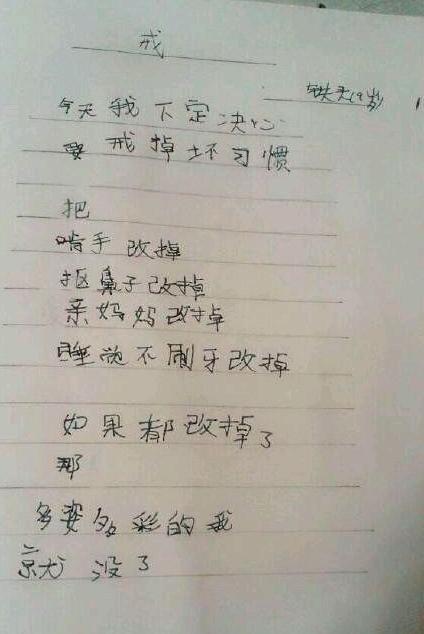 戒
铁头19岁
今天我下定决心
要戒掉坏习惯
把
啃手改掉
抠鼻子改掉
亲妈妈改掉
睡觉不刷牙改掉
如果都改掉了
那
多姿多彩的我
就没了